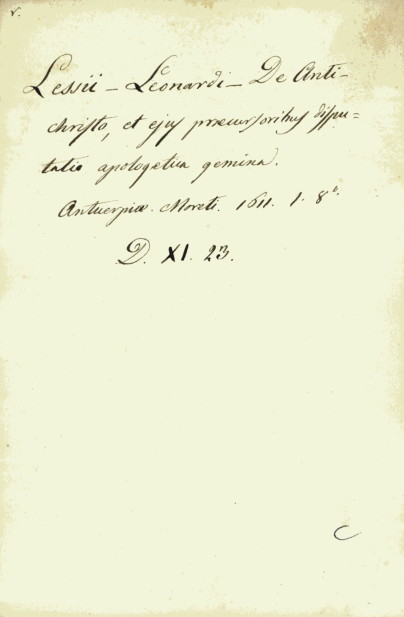 v.
Lessii - Leonardi - De Anti-
christo, et ejus præcursoribus dispu=
tatio apologetica gemina.
Antuerpiæ. Moreti. 1611. 1. 8°.
D. XI. 23.
C